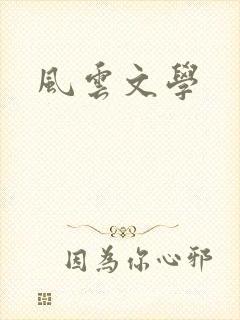 風雲文學
因為你心邪